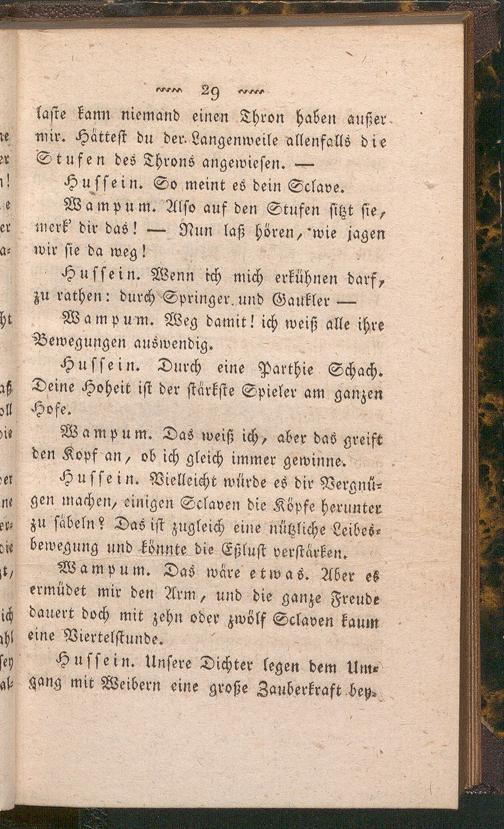 29
laste kann niemand einen Thron haben außer
mir. Hättest du der Langenweile allenfalls die
Stufen des Throns angewiesen. —
Hussein. So meint es dein Sclave.
Wampum. Also auf den Stufen sitzt sie,
merk' dir das! — Nun laß hören, wie jagen
wir sie da weg!
Hussein. Wenn ich mich erkühnen darf,
zu rathen: durch Springer und Gaukler —
Wampum. Weg damit! ich weiß alle ihre
Bewegungen auswendig.
Hussein. Durch eine Parthie Schach.
Deine Hoheit ist der stärkste Spieler am ganzen
Hofe.
Wampum. Das weiß ich, aber das greift
den Kopf an, ob ich gleich immer gewinne.
Hussein. Vielleicht würde es dir Vergnü-
gen machen, einigen Sclaven die Köpfe herunter
zu säbeln? Das ist zugleich eine nützliche Leibes-
bewegung und könnte die Eßlust verstärken.
Wampum. Das wäre etwas. Aber es
ermüdet mir den Arm, und die ganze Freude
dauert doch mit zehn oder zwölf Sclaven kaum
eine Viertelstunde.
Hussein. Unsere Dichter legen dem Um-
gang mit Weibern eine große Zauberkraft bey.